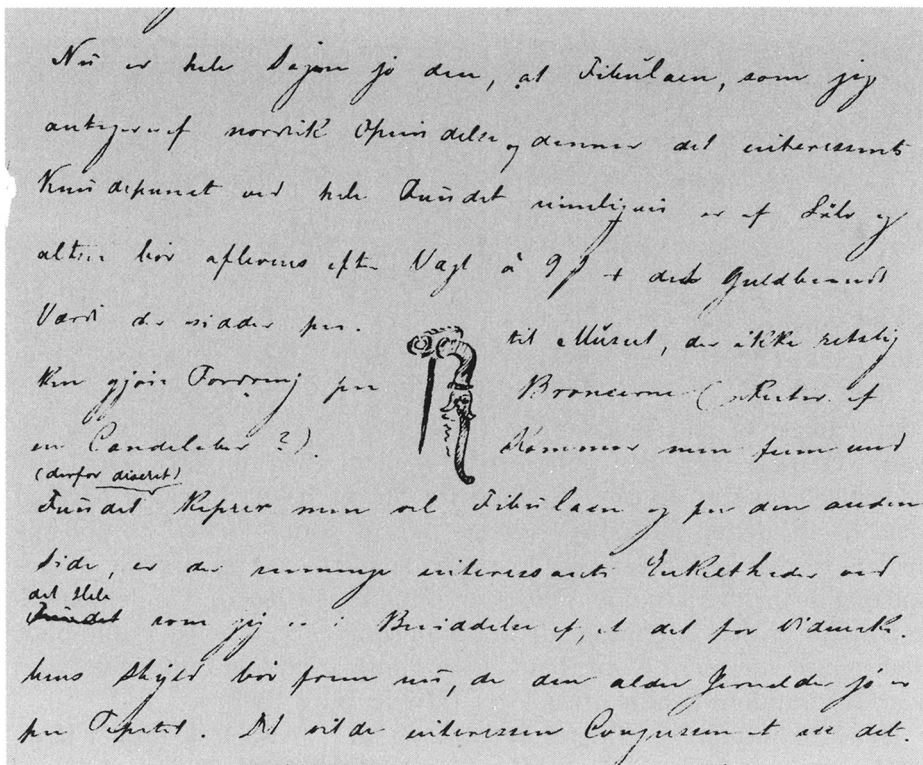 Nu er hele Sagen jo den, at Fibulaen, som jeg
antager er af nordisk Oprindelse og danner det interessante
Knudepunct ved hele Fundet rimeligvis er af Sølv og
altsaa bør afleveres efter Vægt à 9 + det Guldbaands
Værdi der sidder paa. til Museet, der ikke retslig
kan gjøre Fordring paa Broncerne (Rester af
en Candelaber ?). Kommer man frem med
(derfor discret)
Fundet kapser man vel Fibulaen og paa den anden
Side, er der saamange interessante Enkeltheder ved
det Hele
Fundet som jeg er i Besiddelse af, at det for Videnska-
bens Skyld bør frem nu, da den ældre Jernalder jo er
paa Tapetet. Det vilde interessere Congressen at see det.